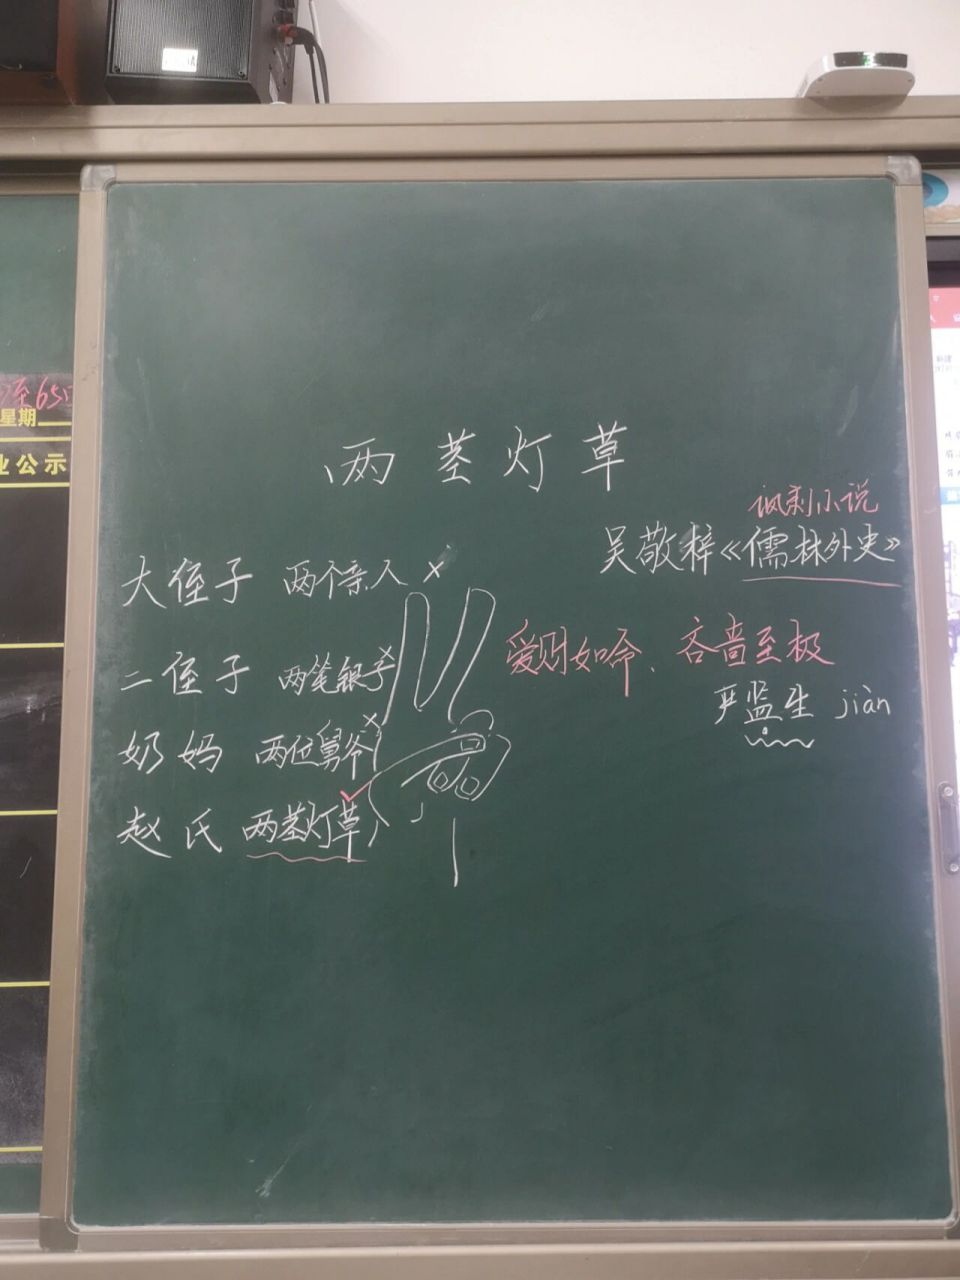 至65
星期
业公示
两茎灯草
讽刺小说
吴敬梓《儒林外史》
大侄子 两个亲人 ×
二侄子 两笔银子 ×
奶妈 两位舅爷 ×
赵氏 两茎灯草 ✓
爱财如命、吝啬至极
严监生 jiàn